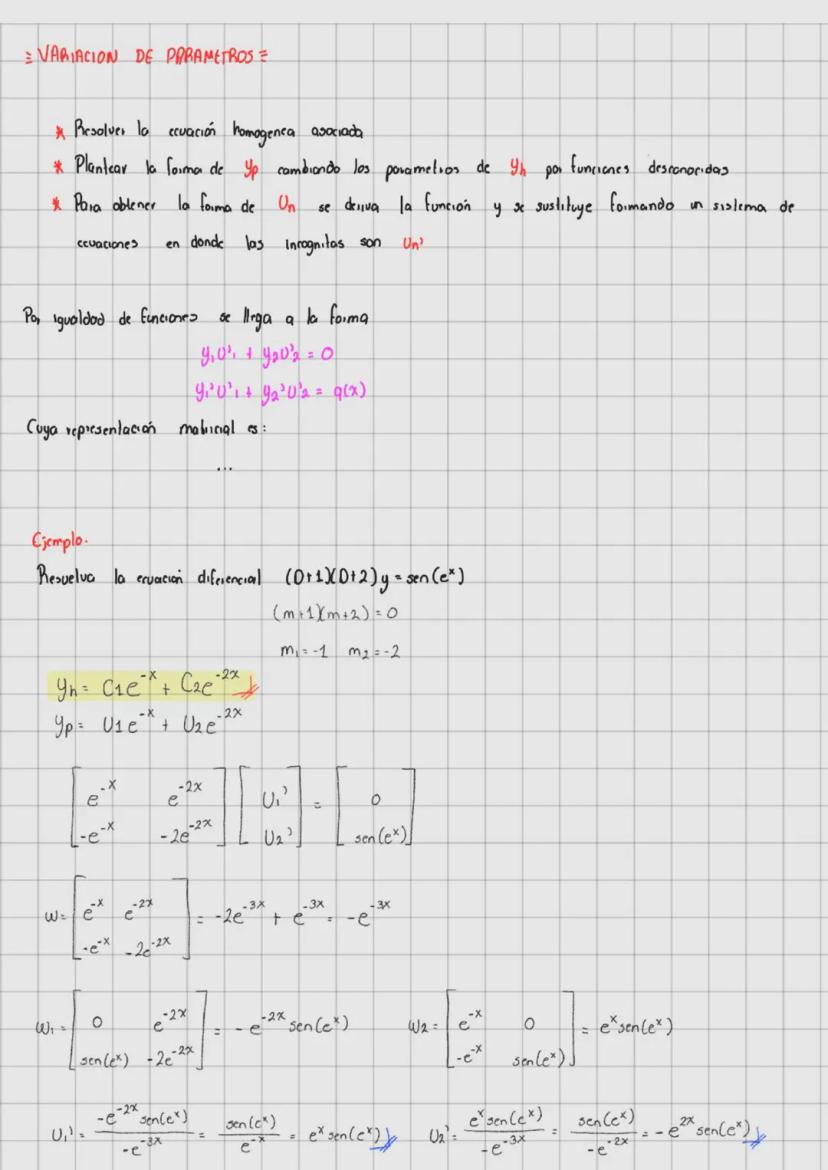 = VARIACION DE PARAMETROS =
* Resolver la ecuación homogenea asociada
* Plantear la forma de yp cambiando los parametros de yh por funciones desconocidas
* Para obtener la forma de Un se deriva la función y se sustituye formando un sistema de
ecuaciones en donde las incognitas son Un'
Por igualdad de funciones se llega a la forma
y₁U'₁ + y₂U'₂ = 0
y₁'U'₁ + y₂'U'₂ = q(x)
Cuya representación matricial es:
...
Ejemplo.
Resuelva la ecuacion diferencial (D+1)(D+2)y = sen(eˣ)
(m+1)(m+2) = 0
m₁ = -1 m₂ = -2
yh = C1e⁻ˣ + C2e⁻²ˣ
yp = U1e⁻ˣ + U2e⁻²ˣ
[e⁻ˣ e⁻²ˣ] [U₁'] = [0]
[-e⁻ˣ -2e⁻²ˣ] [U₂'] [sen(eˣ)]
W = [e⁻ˣ e⁻²ˣ] = -2e⁻³ˣ + e⁻³ˣ = -e⁻³ˣ
[-e⁻ˣ -2e⁻²ˣ]
W₁ = [0 e⁻²ˣ] = -e⁻²ˣ sen(eˣ) W₂ = [e⁻ˣ 0] = eˣ sen(eˣ)
[sen(eˣ) -2e⁻²ˣ] [-e⁻ˣ sen(eˣ)]
U₁' = -e⁻²ˣ sen(eˣ) / -e⁻³ˣ = sen(eˣ) / e⁻ˣ = eˣ sen(eˣ) U₂' = eˣ sen(eˣ) / -e⁻³ˣ = sen(eˣ) / -e⁻²ˣ = -e²ˣ sen(eˣ)